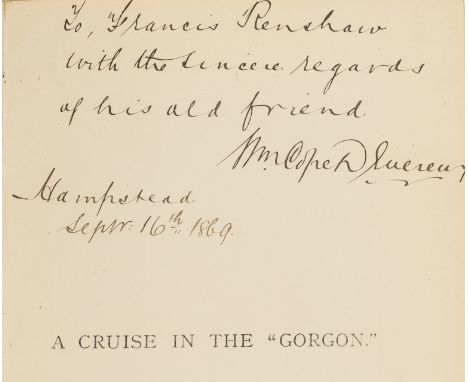 To, Francis Renshaw
with the sincere regards
of his old friend
Wm Cope Devereux
Hampstead
Septr. 16th 1869.
A CRUISE IN THE "GORGON."